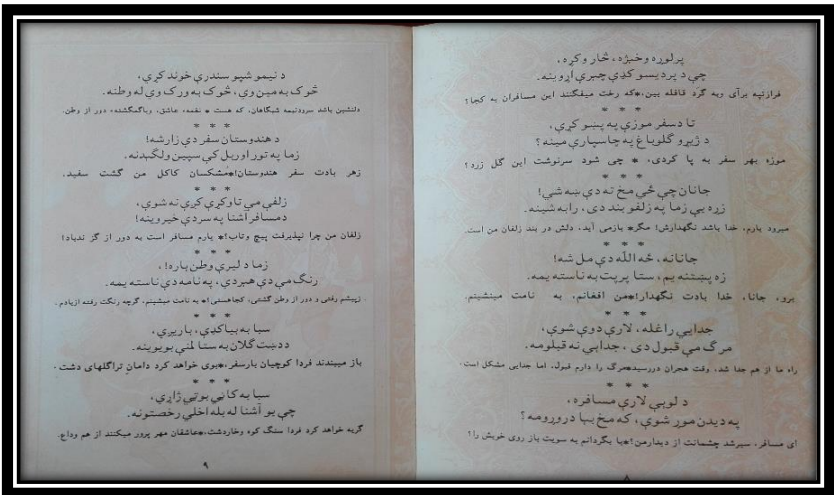 پرلوړه وخېژه، څار وکړه،
چې د پردیسو کډې چېرې اړوینه.
فرازتپه برآی وبه گرد قافله بین،*که رخت میفگنند این مسافران به کجا؟
* * *
تا د سفر موزې په پښو کړې،
د ژیړو گلو باغ په چا سپارې مینه؟
موزه بهر سفر به پا کردی، * چی شود سرنوشت این گل زرد؟
* * *
جانان چې ځي مخ ته دې ښه شي!
زړه یې زما په زلفو بند دی، رابه شینه.
میرود یارم، خدا باشد نگهدارش! مگر* بازمی آید، دلش در بند زلفان من است.
* * *
جانانه، ځه الله دې مل شه!
زه پښتنه یم، ستا پر پت به ناسته یمه.
برو، جانا، خدا بادت نگهدار!*من افغانم، به نامت مینشینم.
* * *
جدایي راغله، لارې دوې شوې،
مرگ مې قبول دی، جدایي نه قبلومه.
راه ما از هم جدا شد، وقت هجران دررسید*مرگ را دارم قبول، اما جدایی مشکل است.
* * *
د لوېې لارې مسافره،
په دیدن موړ شوې، که مخ بیا در وړومه؟
ای مسافر، سیرشد چشمانت از دیدارمن؟*یا بگردانم به سویت باز روی خویش را؟
۸
د نیمو شپو سندرې خوند کړي،
څوک به مین وي، څوک به ورک وي له وطنه.
دلنشین باشد سرودنیمه شبگاهان، که هست * نغمهء عاشق، وباگمگشتهء دور از وطن.
* * *
د هندوستان سفر دې زار شه!
زما په تور اوربل کې سپین ولگېدنه.
زهر بادت سفر هندوستان!*مشکسان کاکل من گشت سفید.
* * *
زلفې مې تاو کړې کړې نه شوې،
د مسافر آشنا په سر دې خیر وینه!
زلفان من چرا نپذیرفت پیچ وتاب؟* یارم مسافر است به دور از گز ندباد!
* * *
زما د لیرې وطن یاره!،
رنگ مې دې هېر دی، په نامه دې ناسته یمه.
زپیشم رفتی و دور از وطن گشتی، کجاهستی؟* به نامت مینشینم، گرچه رنگت رفته ازیادم.
* * *
سبا به بیا کډې، باریږي،
د دښت گلان به ستا لمنې بویوینه.
باز میبندند فردا کوچیان بارسفر،*بوی خواهد کرد دامان تراگلهای دشت.
* * *
سبا به کاڼي بوټي ژاړي،
چې یو آشنا له بله اخلي رخصتونه.
گریه خواهد کرد فردا سنگ کوه وخاردشت،*عاشقان مهر پرور میکنند از هم وداع.
۹